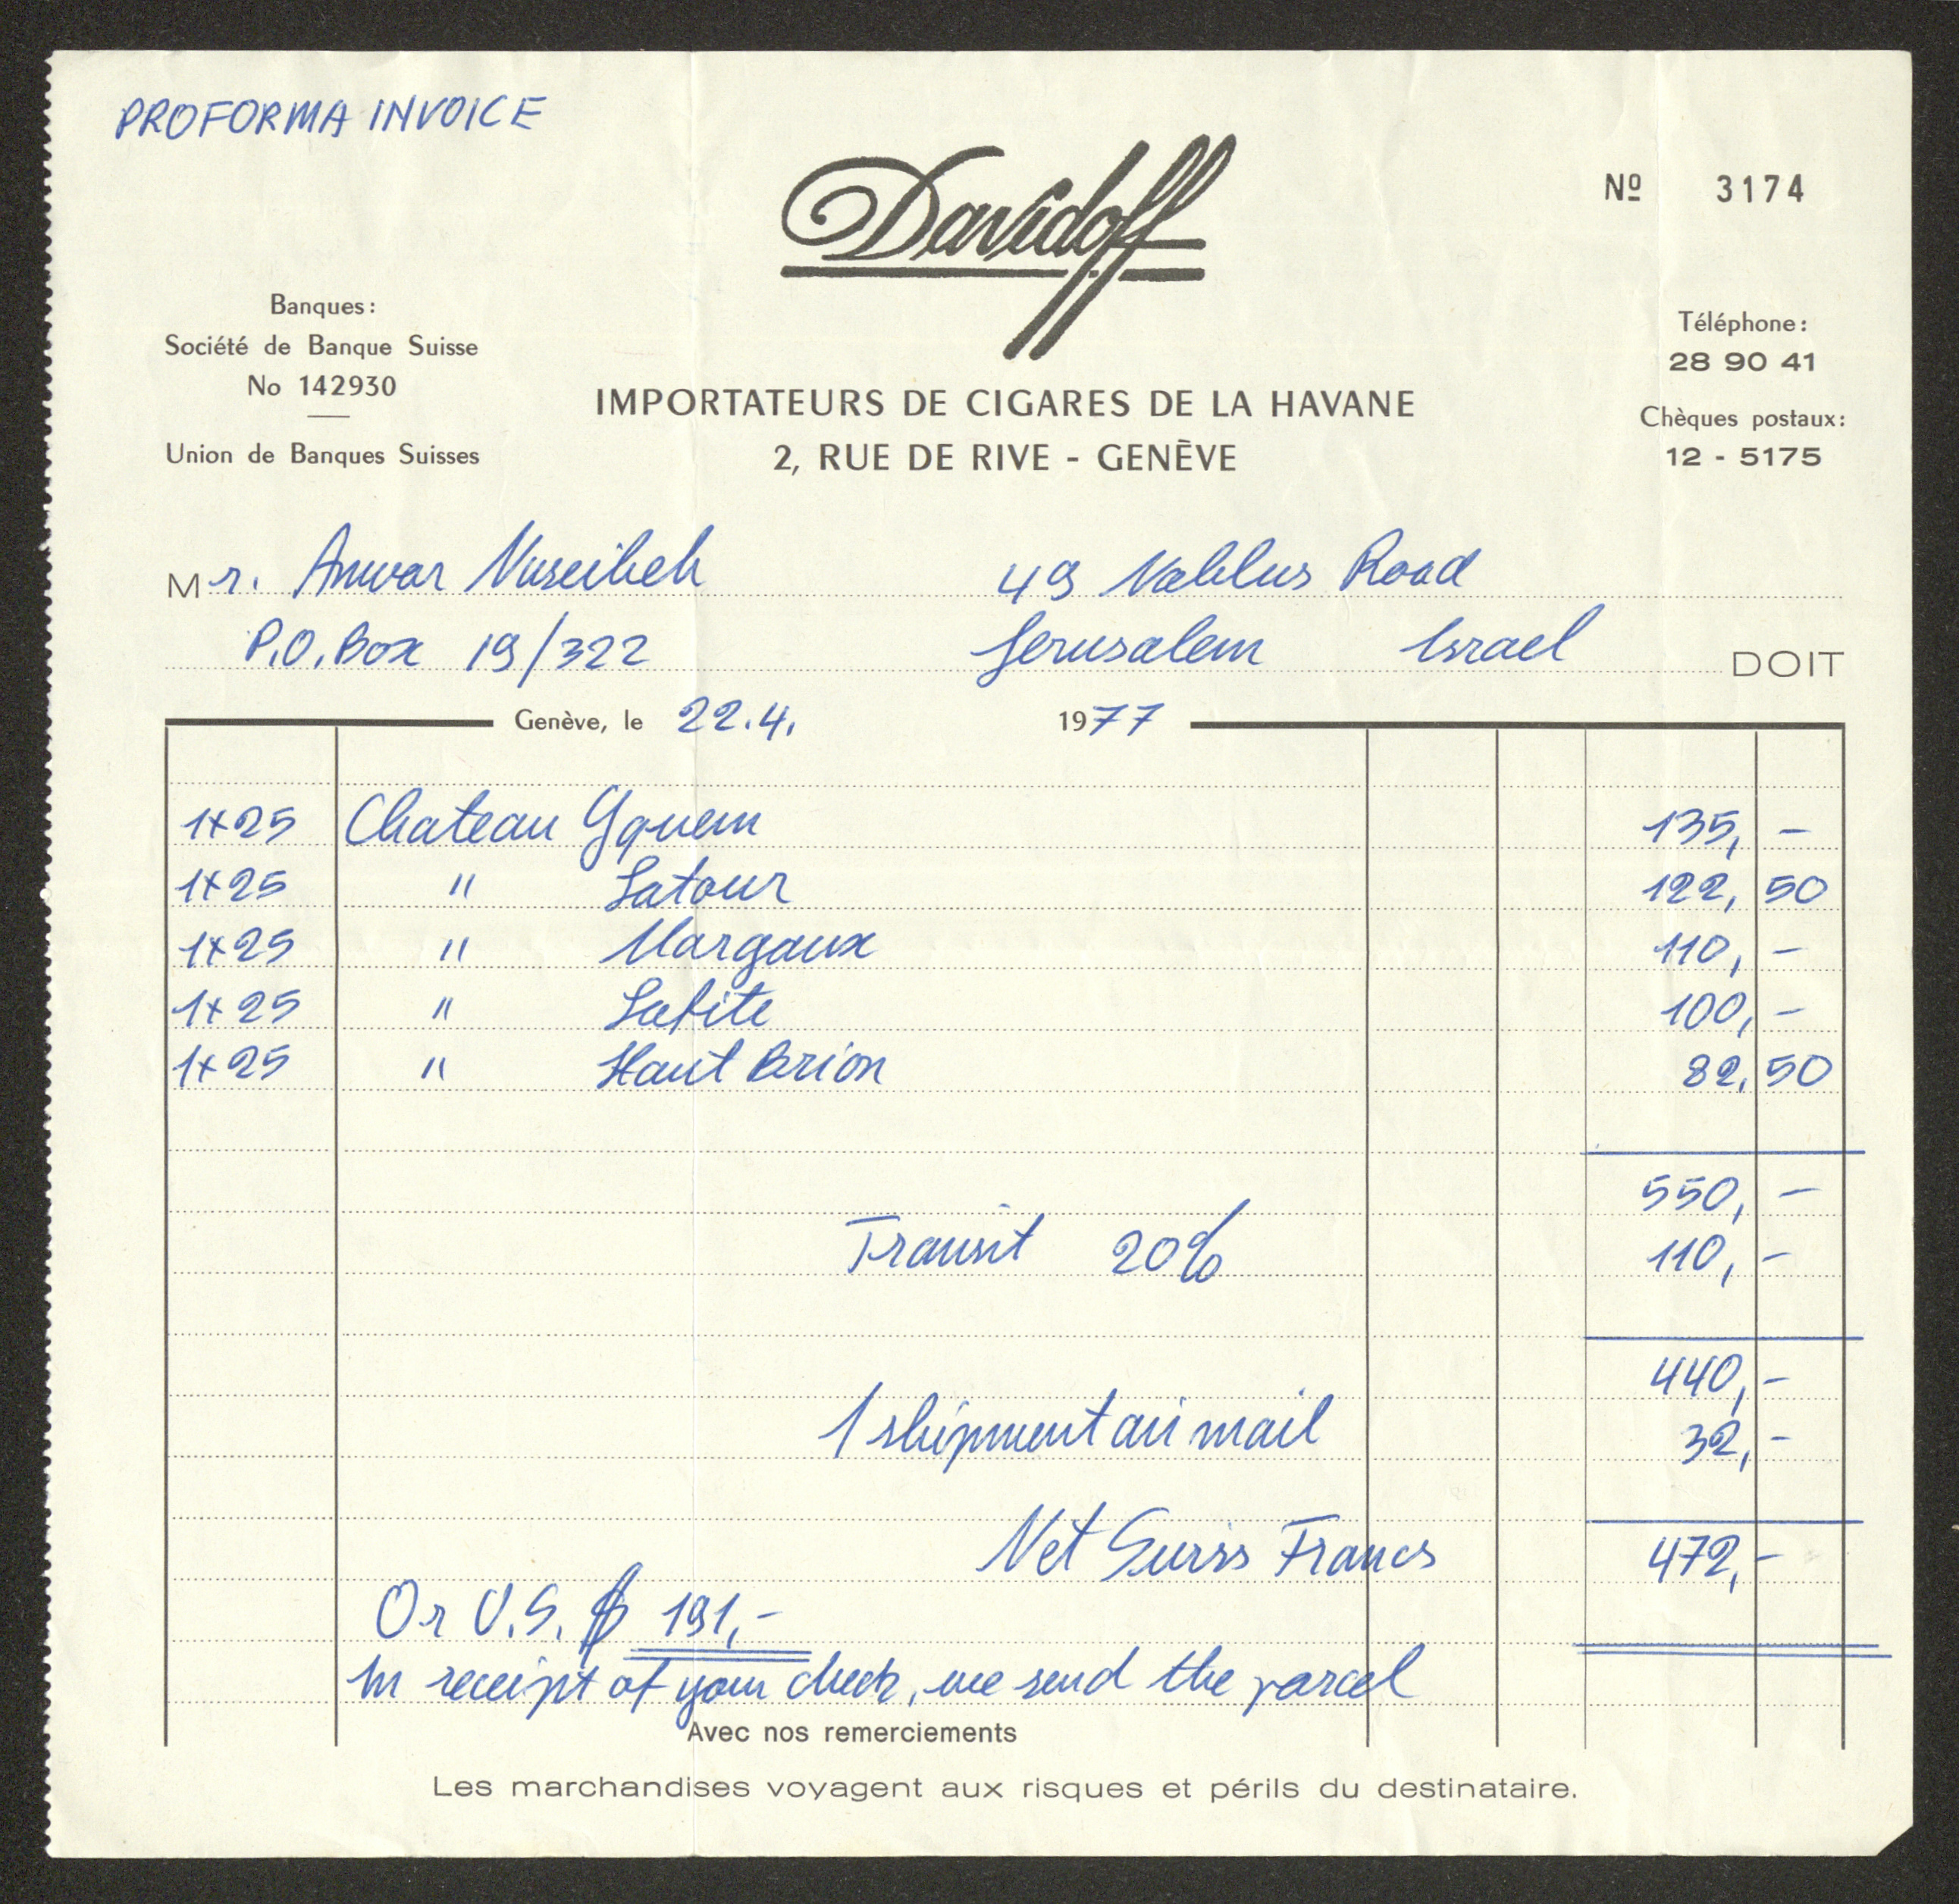 PROFORMA INVOICE
Davidoff
Nº 3174
Banques:
Société de Banque Suisse
No 142930
Union de Banques Suisses
IMPORTATEURS DE CIGARES DE LA HAVANE
2, RUE DE RIVE - GENÈVE
Téléphone:
28 90 41
Chèques postaux:
12 - 5175
Mr. Anwar Nuseibeh 49 Nablus Road
P.O. Box 19/322 Jerusalem Israel DOIT
Genève, le 22.4. 1977
1x25 Chateau Yquem 135, -
1x25 " Latour 122, 50
1x25 " Margaux 110, -
1x25 " Lafite 100, -
1x25 " Haut Brion 82, 50
550, -
Transit 20% 110, -
440, -
1 shipment air mail 32, -
Net Swiss Francs 472, -
Or U.S. $ 191,-
In receipt of your check, we send the parcel
Avec nos remerciements
Les marchandises voyagent aux risques et périls du destinataire.